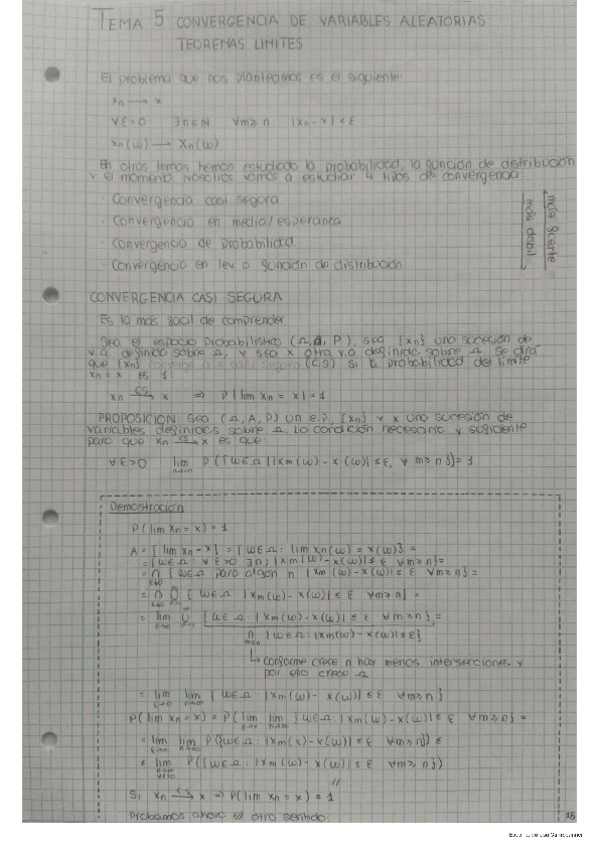 TEMA 5 CONVERGENCIA DE VARIABLES ALEATORIAS:
TEOREMAS LIMITES
El problema que nos planteamos es el siguiente:
xn → x
∀ε>0 ∃n∈N ∀m≥n |xn-x|<ε
xn(ω) → Xn(ω)
En otros temas hemos estudiado la probabilidad, la función de distribución
y el momento. Nosotros vamos a estudiar 4 tipos de convergencia:
· Convergencia casi segura
· Convergencia en media/esperanza
· Convergencia de probabilidad
· Convergencia en ley o función de distribución
más fuerte
más débil
CONVERGENCIA CASI SEGURA
Es la más fácil de comprender.
Sea el espacio probabilístico (Ω, A, P), sea {xn} una sucesión de
v.a. definida sobre Ω, y sea x otra v.a definida sobre Ω. Se dirá
que {xn} converge a x casi segura (c.s) si la probabilidad del límite
xn = x es 1:
xn –cs→ x ⇒ P[lim xn = x] = 1
PROPOSICION: Sea (Ω, A, P) un e.p., {xn} y x una sucesión de
variables definidas sobre Ω. La condición necesaria y suficiente
para que xn –cs→ x es que:
∀ε>0 lim P({ω∈Ω | |xm(ω) - x(ω)| ≤ ε, ∀m≥n}) = 1
Demostración
P(lim xn = x) = 1
A = {lim xn - x} = {ω∈Ω : lim xn(ω) = x(ω)} =
= {ω∈Ω : ∀ε>0 ∃n; |xm(ω) - x(ω)| ≤ ε ∀m≥n} =
= ∩ {ω∈Ω para algún n |xm(ω) - x(ω)| ≤ ε ∀m≥n} =
= ∩ ∪ {ω∈Ω |xm(ω) - x(ω)| ≤ ε ∀m≥n} =
= lim ∪ {ω∈Ω : |xm(ω) - x(ω)| ≤ ε ∀m≥n} =
∩ {ω∈Ω : |xm(ω) - x(ω)| ≤ ε}
↳ conforme crece n hay menos intersecciones y
por ello crece Ω
= lim lim {ω∈Ω : |xm(ω) - x(ω)| ≤ ε ∀m≥n}
P(lim xn = x) = P(lim lim {ω∈Ω : |xm(ω) - x(ω)| ≤ ε ∀m≥n}) =
= lim lim P({ω∈Ω : |xm(x) - x(ω)| ≤ ε ∀m≥n}) ≤
≤ lim P({ω∈Ω : |xm(ω) - x(ω)| ≤ ε ∀m≥n})
//
Si xn –cs→ x ⇒ P(lim xn = x) = 1
Probamos ahora el otro sentido: